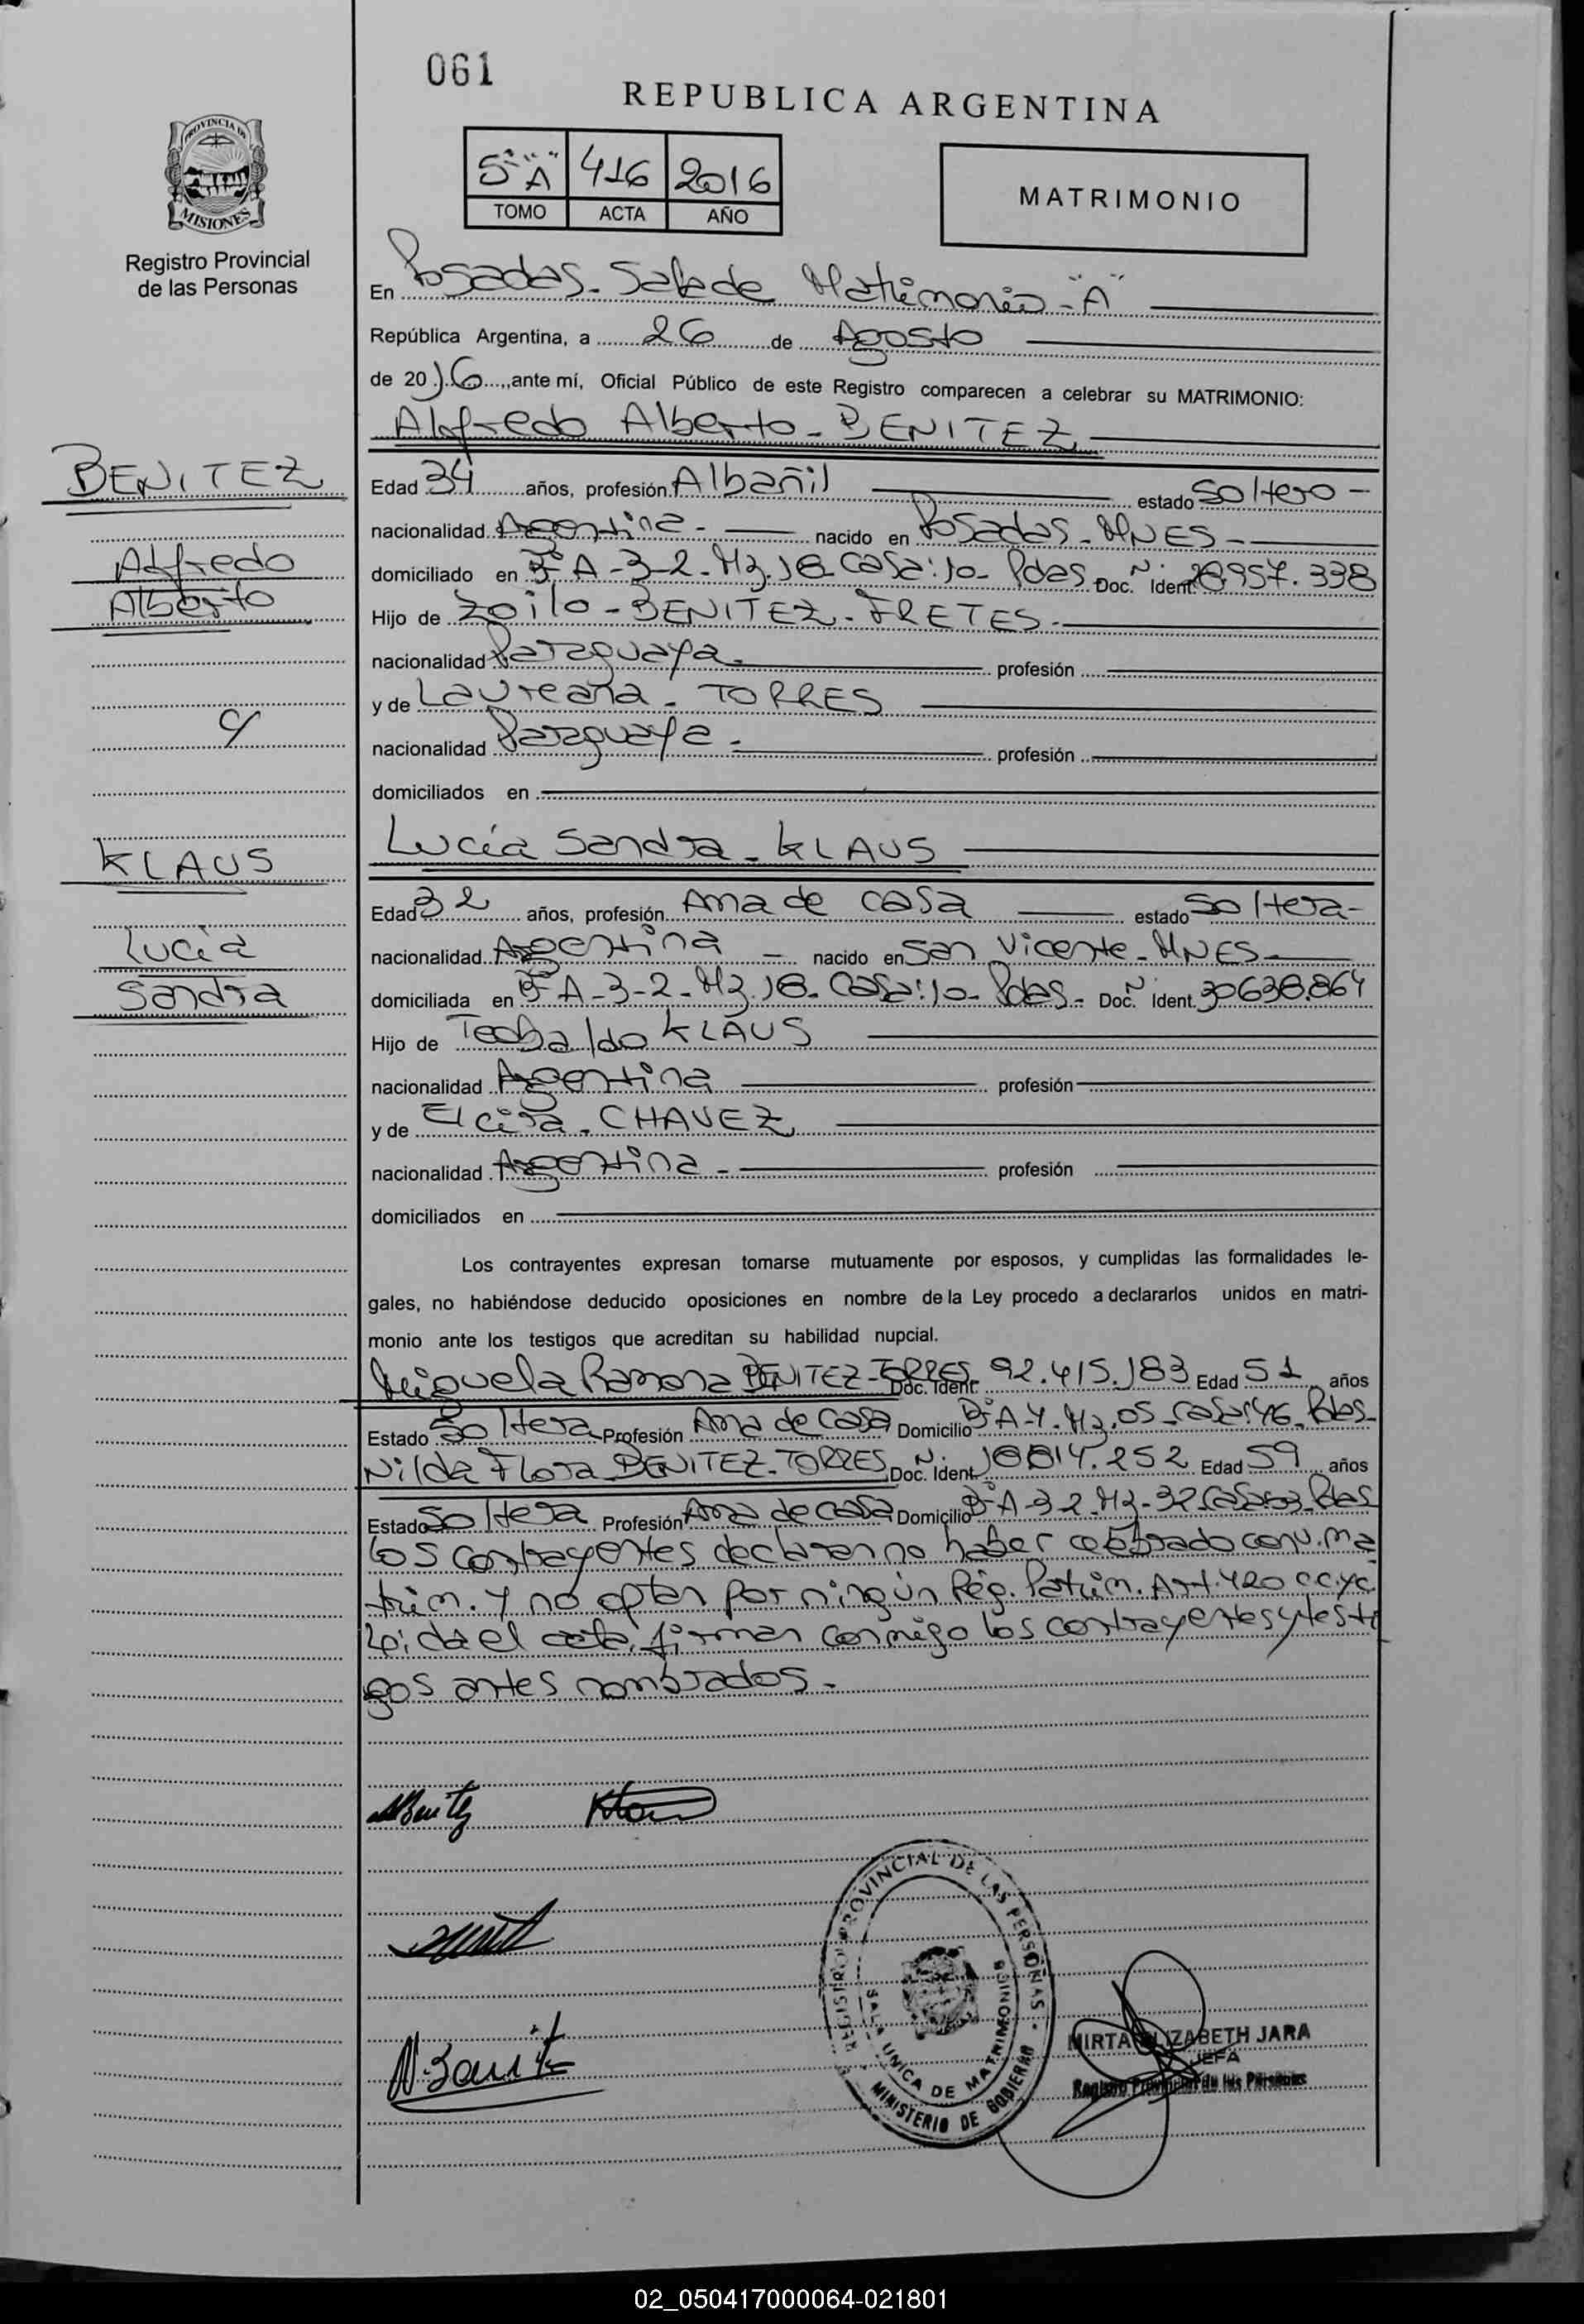 061
REPUBLICA ARGENTINA
PROVINCIA DE
MISIONES
Registro Provincial
de las Personas
5° "A" 416 2016
TOMO ACTA AÑO
MATRIMONIO
En Posadas - Sala de Matrimonio - "A"
República Argentina, a 26 de Agosto
de 2016, ante mí, Oficial Público de este Registro comparecen a celebrar su MATRIMONIO:
Alfredo Alberto - BENITEZ
BENITEZ
Alfredo
Alberto
Edad 34 años, profesión Albañil estado Soltero -
nacionalidad Argentina - nacido en Posadas - MNES -
domiciliado en B° A-3-2-Mz. 18 - Casa: 10 - Pdas. Doc. N° Ident. 28.957.338
Hijo de Zoilo - BENITEZ - FRETES -
nacionalidad Paraguaya - profesión
y de Laureana - TORRES
nacionalidad Paraguaya - profesión
domiciliados en
c/
KLAUS
Lucía
Sandra
Lucía Sandra - KLAUS
Edad 32 años, profesión Ama de casa estado Soltera -
nacionalidad Argentina - nacido en San Vicente - MNES -
domiciliada en B° A-3-2-Mz. 18 - Casa: 10 - Pdas - Doc. N° Ident. 30638.864
Hijo de Teobaldo KLAUS
nacionalidad Argentina profesión
y de Elcira - CHAVEZ
nacionalidad Argentina - profesión
domiciliados en
Los contrayentes expresan tomarse mutuamente por esposos, y cumplidas las formalidades le-
gales, no habiéndose deducido oposiciones en nombre de la Ley procedo a declararlos unidos en matri-
monio ante los testigos que acreditan su habilidad nupcial.
Miguela Ramona BENITEZ - TORRES Doc. Ident. 92.415.183 Edad 51 años
Estado Soltera Profesión Ama de casa Domicilio B° A-4-Mz. 05 - Casa: 46 - Pdas -
Nilda Flora BENITEZ - TORRES Doc. N° Ident. 18814.252 Edad 59 años
Estado Soltera Profesión Ama de casa Domicilio B° A-3-2-Mz-32 Pdas
Los contrayentes declaran no haber celebrado conv. ma
trim. y no optan por ningún Rég. Patrim. Art. 420 C.C.yC.
Leída el acta, firman conmigo los contrayentes y testi
gos antes nombrados. -
ABenitez
N. Benit
REGISTRO PROVINCIAL DE LAS PERSONAS -
SALA UNICA DE MATRIMONIOS
MINISTERIO DE GOBIERNO
MIRTA ELIZABETH JARA
JEFA
Registro Provincial de las Personas
02_050417000064-021801